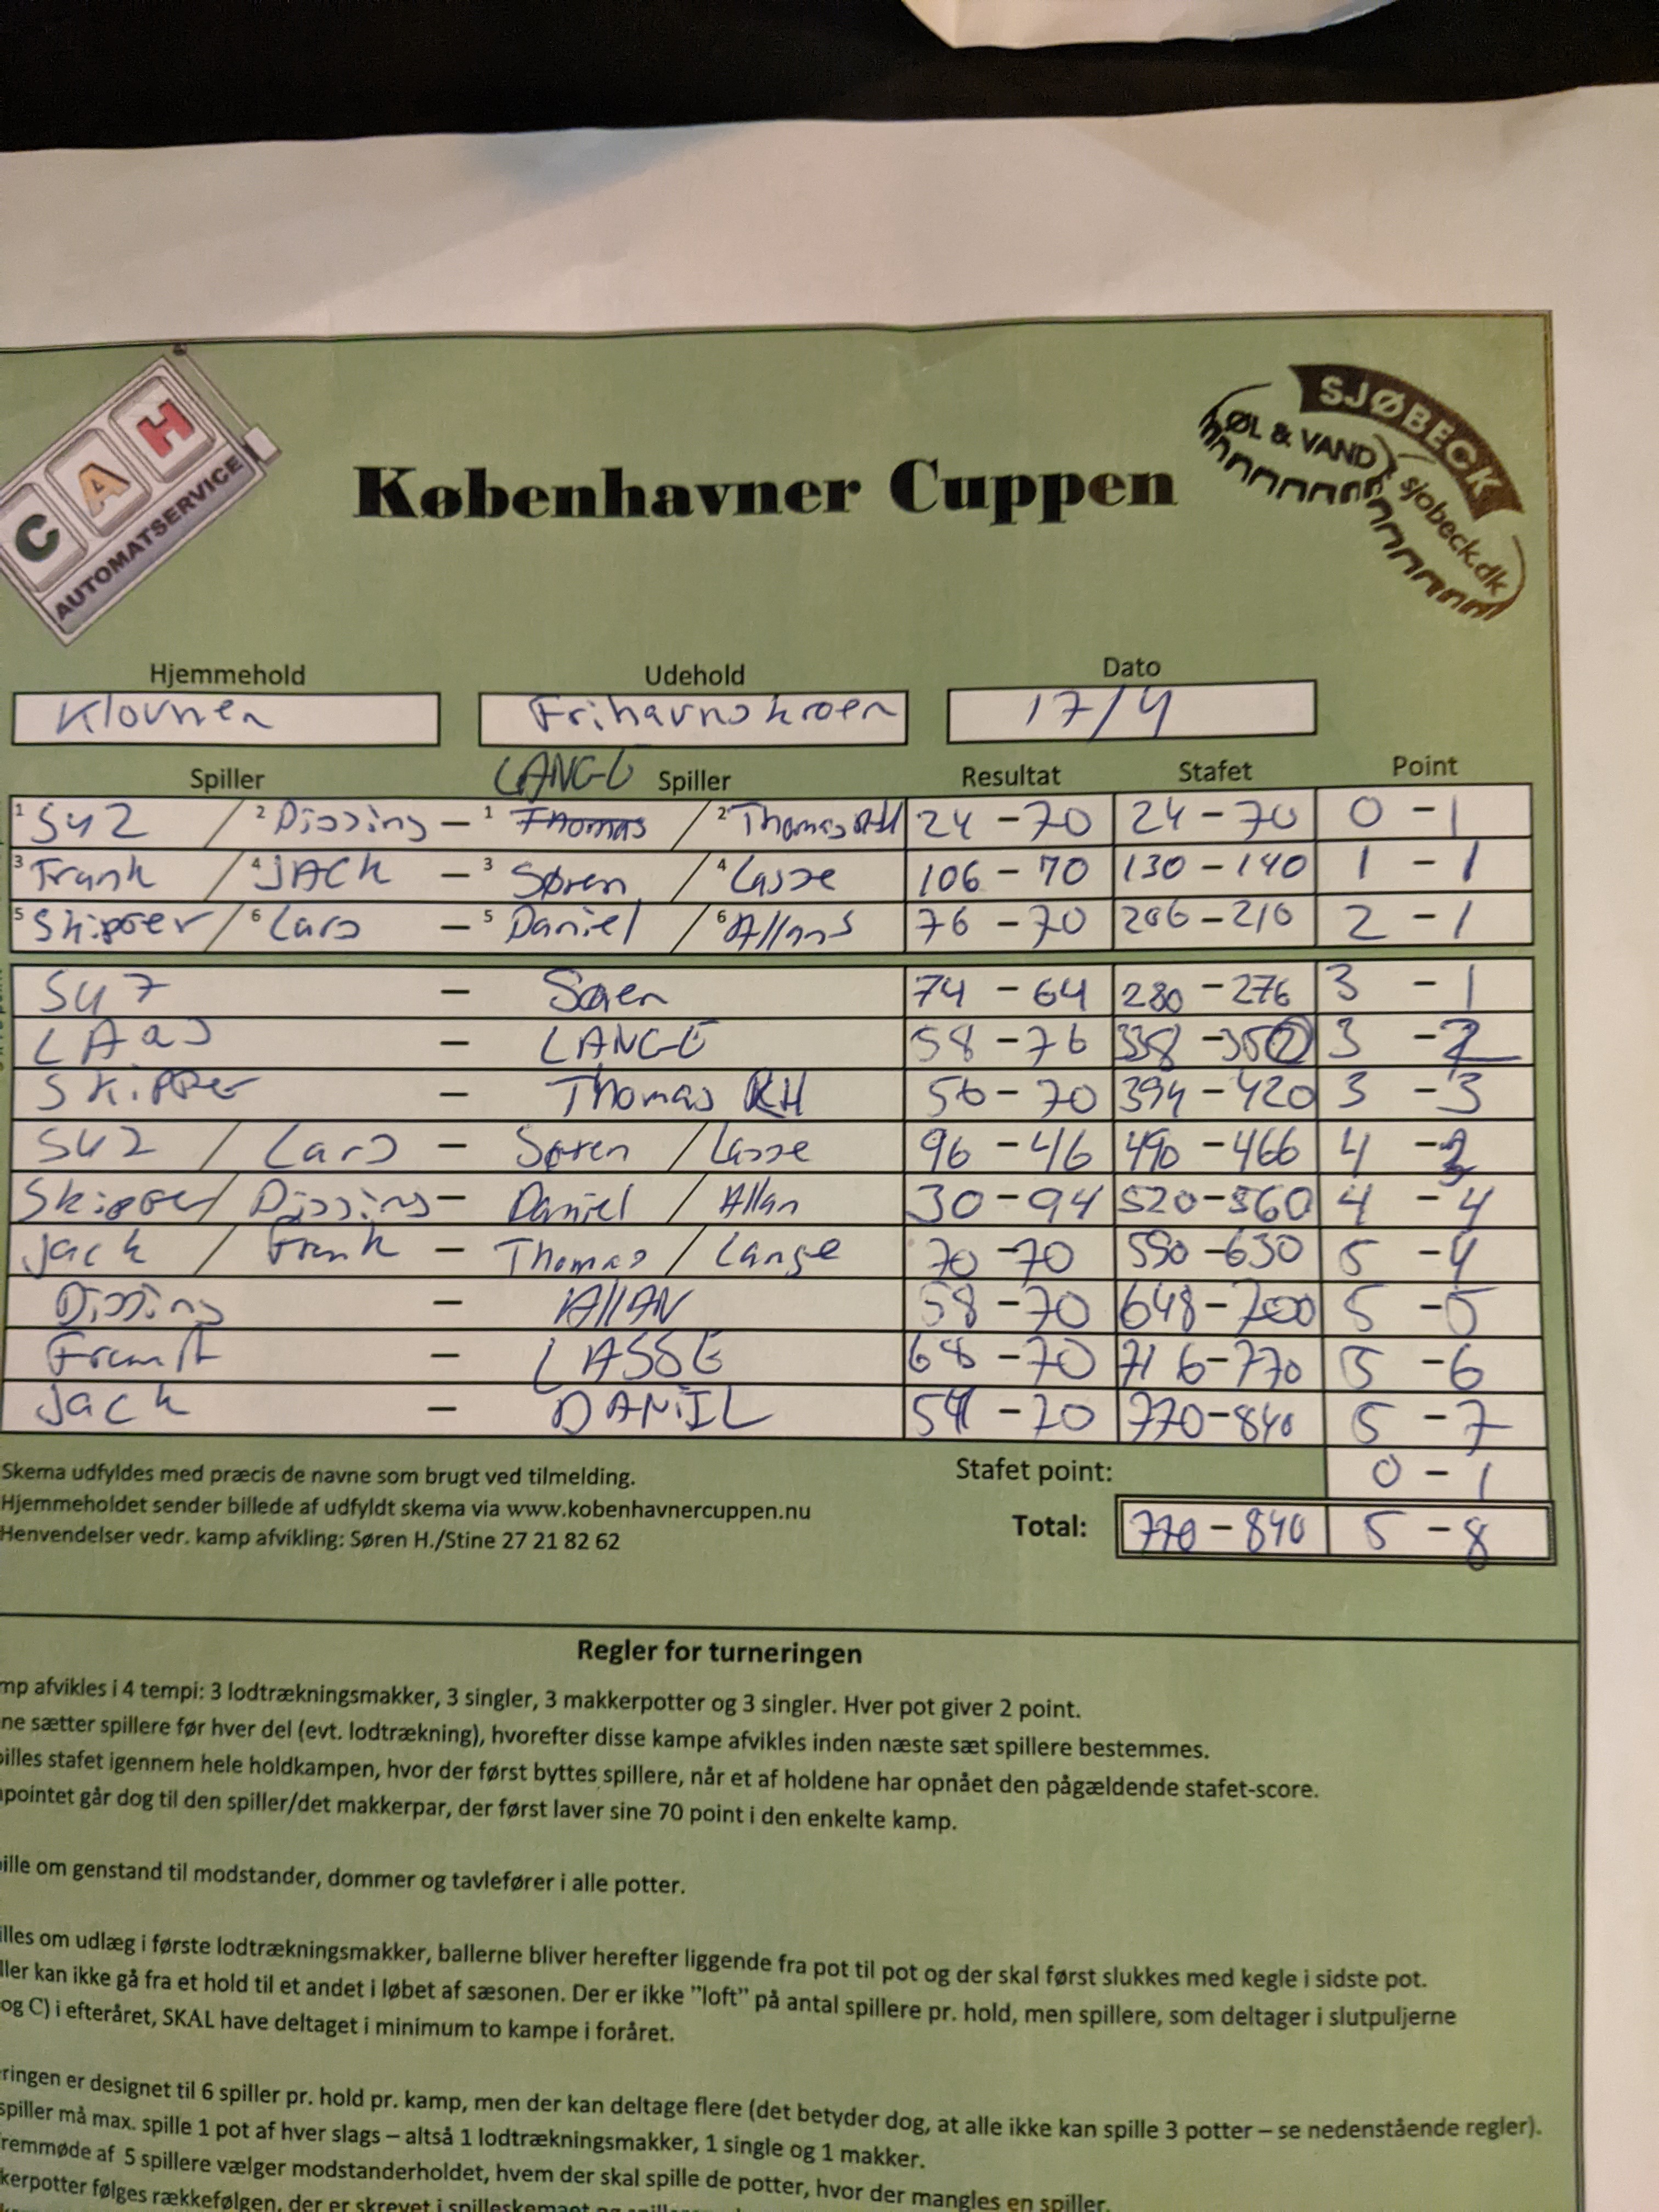 CAH
AUTOMATSERVICE
SJØBECK
ØL & VAND
sjobeck.dk
Københavner Cuppen
Hjemmehold Udehold Dato
Klovnen Frihavnskroen 17/4
LANGE
Spiller Spiller Resultat Stafet Point
1 Su2 / 2 Dissing - 1 Thomas / 2 Thomas RH 24 - 70 24 - 70 0 - 1
3 Frank / 4 JACK - 3 Søren / 4 Lasse 106 - 70 130 - 140 1 - 1
5 Skipper / 6 Lars - 5 Daniel / 6 Allan 76 - 70 206 - 210 2 - 1
Su2 - Søren 74 - 64 280 - 276 3 - 1
LARS - LANGE 58 - 76 338 - 350 3 - 2
Skipper - Thomas RH 56 - 70 394 - 420 3 - 3
Su2 / Lars - Søren / Lasse 96 - 46 490 - 466 4 - 3
Skipper / Dissing - Daniel / Allan 30 - 94 520 - 560 4 - 4
Jack / Frank - Thomas / Lange 70 - 70 590 - 630 5 - 4
Dissing - AllAN 58 - 70 648 - 700 5 - 5
Frank - LASSE 68 - 70 716 - 770 5 - 6
Jack - DANIL 54 - 70 770 - 840 5 - 7
Skema udfyldes med præcis de navne som brugt ved tilmelding. Stafet point: 0 - 1
Hjemmeholdet sender billede af udfyldt skema via www.kobenhavnercuppen.nu
Henvendelser vedr. kamp afvikling: Søren H./Stine 27 21 82 62 Total: 770 - 840 5 - 8
Regler for turneringen
mp afvikles i 4 tempi: 3 lodtrækningsmakker, 3 singler, 3 makkerpotter og 3 singler. Hver pot giver 2 point.
ne sætter spillere før hver del (evt. lodtrækning), hvorefter disse kampe afvikles inden næste sæt spillere bestemmes.
pilles stafet igennem hele holdkampen, hvor der først byttes spillere, når et af holdene har opnået den pågældende stafet-score.
pointet går dog til den spiller/det makkerpar, der først laver sine 70 point i den enkelte kamp.
pille om genstand til modstander, dommer og tavlefører i alle potter.
illes om udlæg i første lodtrækningsmakker, ballerne bliver herefter liggende fra pot til pot og der skal først slukkes med kegle i sidste pot.
ller kan ikke gå fra et hold til et andet i løbet af sæsonen. Der er ikke "loft" på antal spillere pr. hold, men spillere, som deltager i slutpuljerne
og C) i efteråret, SKAL have deltaget i minimum to kampe i foråret.
ringen er designet til 6 spiller pr. hold pr. kamp, men der kan deltage flere (det betyder dog, at alle ikke kan spille 3 potter – se nedenstående regler).
spiller må max. spille 1 pot af hver slags – altså 1 lodtrækningsmakker, 1 single og 1 makker.
remmøde af 5 spillere vælger modstanderholdet, hvem der skal spille de potter, hvor der mangles en spiller.
kerpotter følges rækkefølgen, der er skrevet i spilleskemaet og